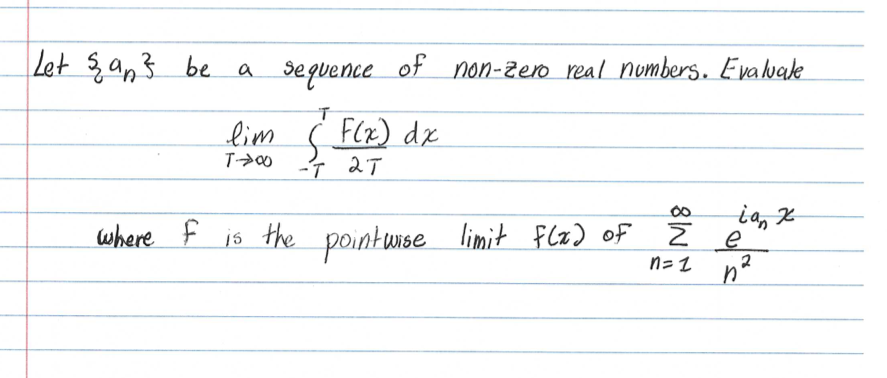 Let {aₙ} be a sequence of non-zero real numbers. Evaluate
lim_{T→∞} ∫_{-T}^{T} F(x)/2T dx
where f is the pointwise limit f(x) of ∑_{n=1}^{∞} e^{iaₙx}/n²